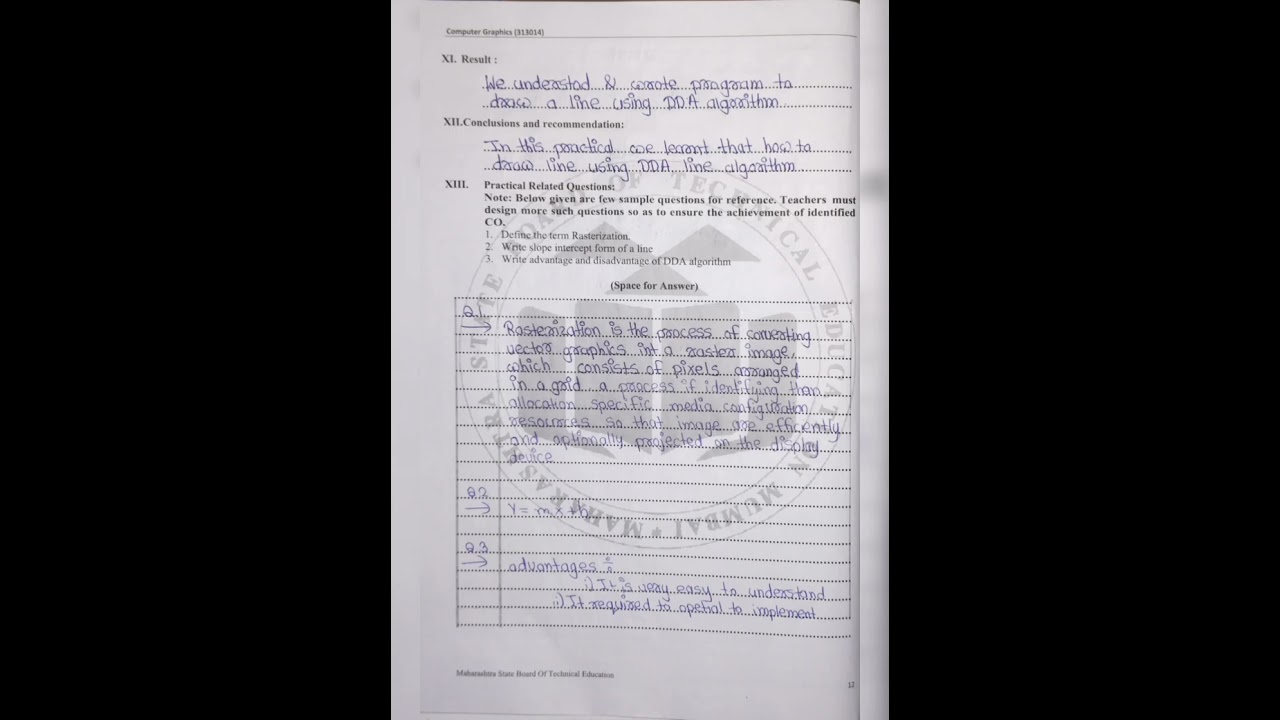 Computer Graphics (313014)
XI. Result :
We understod & wrote program to
draw a line using DDA algorithm
XII.Conclusions and recommendation:
In this practical we learnt that how to
draw line using DDA line algorithm
XIII. Practical Related Questions:
Note: Below given are few sample questions for reference. Teachers must
design more such questions so as to ensure the achievement of identified
CO.
1. Define the term Rasterization.
2. Write slope intercept form of a line
3. Write advantage and disadvantage of DDA algorithm
(Space for Answer)
Q.1.
→ Rasterization is the process of converting
vector graphics int a raster image
which consists of pixels arranged
in a grid a process if identifying than
allocation specific media configuration
resources so that image are efficently
and optionally projected on the display
device
Q2
→ Y = mx +
Q.3
→ advantages :
i) It is very easy to understand
i) It required to to implement
Maharashtra State Board Of Technical Education
12
MAHARASHTRA STATE BOARD OF TECHNICAL EDUCATION MUMBAI